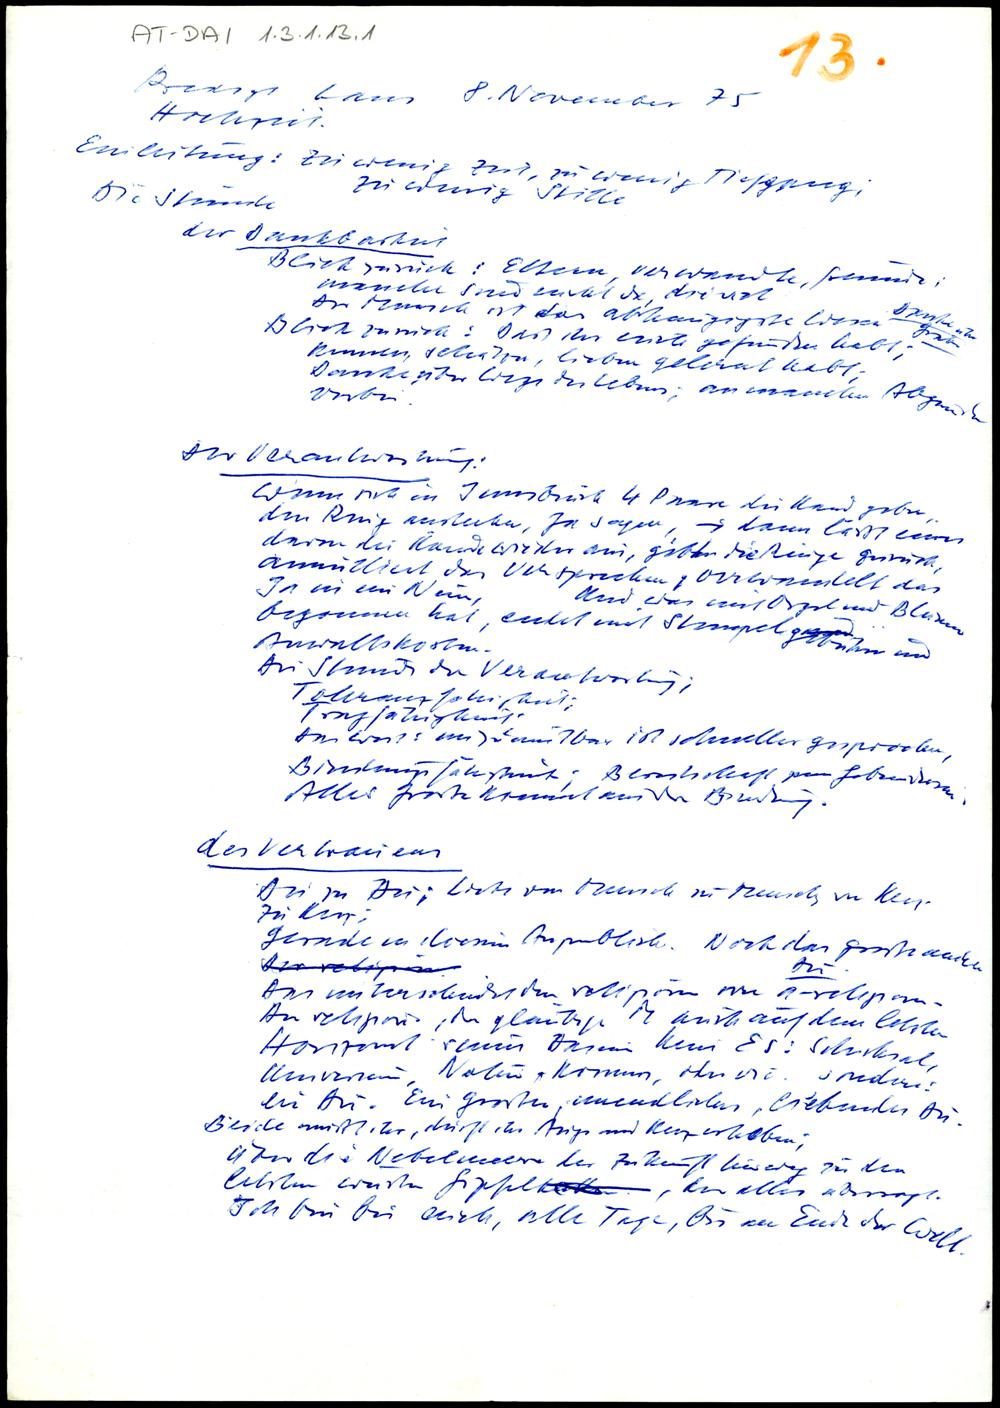 AT-DAI 1.3.1.13.1
13.
Predigt Lans 8. November 75
Hochzeit.
Einleitung: Zu wenig Zeit, zu wenig Tiefgang;
zu wenig Stille
Die Stunde
der Dankbarkeit
Blick zurück: Eltern, Verwandte, Freunde;
manche sind nicht da, die
Der Mensch ist das abhängigste Wesen Danke über
Gräber
Blick zurück: Dass ihr euch gefunden habt;
kennen, schätzen, lieben gelernt habt;
Danke über Wege des Lebens; an manchen Abgründen
vorbei.
Der Verantwortung:
Wenn sich in Innsbruck 4 Paare die Hand geben,
den Ring anstecken, Ja sagen, → dann lässt eines
davon die Hände wieder aus, geben die Ringe zurück,
annulliert das Versprechen, verwandelt das
Ja in ein Nein, Und was mit Orgel und Blumen
begonnen hat, endet mit Stempelgebühren und
Anwaltskosten.
Die Stunde der Verantwortung;
Toleranzfähigkeit;
Tragfähigkeit;
Das Wort: unzumutbar ist schneller gesprochen,
Bindungsfähigkeit; Bereitschaft zum Gebundensein;
Alles Große kommt aus der Bindung.
des Vertrauens
Du zu Du; Liebe von Mensch zu Mensch, von Herz
zu Herz;
Gerade in diesem Augenblick. Noch das große andere
Du.
Der religiöse
Das unterscheidet den religiösen vom a-religiösen
Der religiöse, der gläubige M. sieht auf dem letzten
Horizont seines Daseins kein ES: Schicksal,
Universum, Natur, Kosmos, oder wie. sondern:
ein Du. Ein großes, unendliches, liebendes Du.
Beide müsst ihr, dürft ihr Auge und Herz erheben,
über die Nebelmeere der Zukunft hinweg zu den
letzten weißen Gipfel, der alles überragt.
Ich bin bei euch, alle Tage, bis ans Ende der Welt.